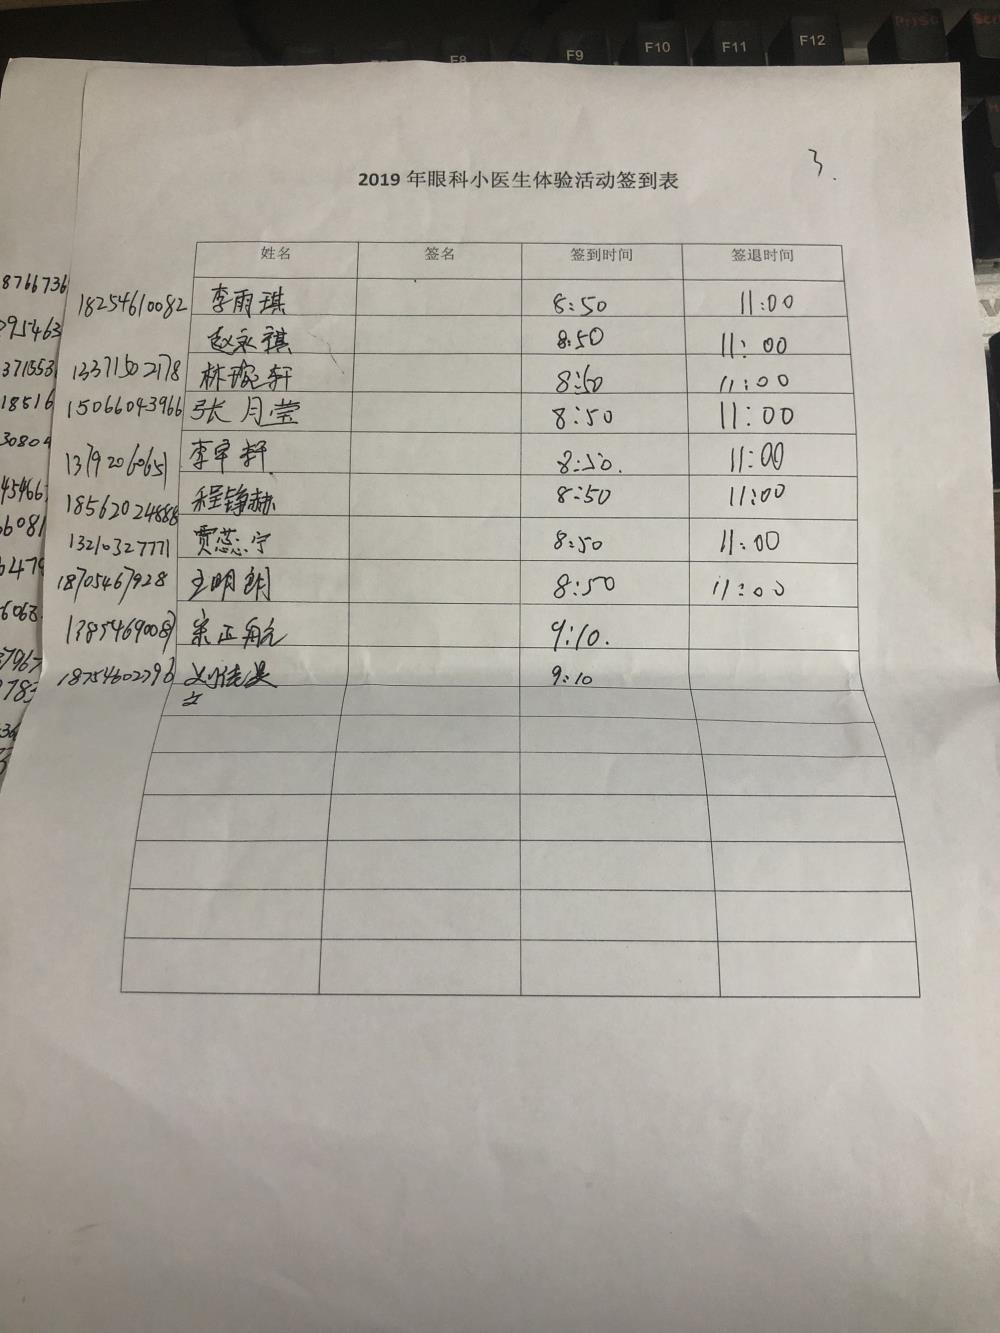 F9 F10 F11 F12
3.
2019 年眼科小医生体验活动签到表
姓名 签名 签到时间 签退时间
18254610082 李雨琪 8:50 11:00
赵永祺 8:50 11:00
13371502178 林琬轩 8:50 11:00
15066043966 张月莹 8:50 11:00
13792060651 李宇轩 8:50. 11:00
18562024888 程铮赫 8:50 11:00
13210327771 贾蕊宁 8:50 11:00
18705467928 王明朗 8:50 11:00
宋正航 9:10.
18754602796 9:10
8766736
95463
371553
18516
30804
45466
66081